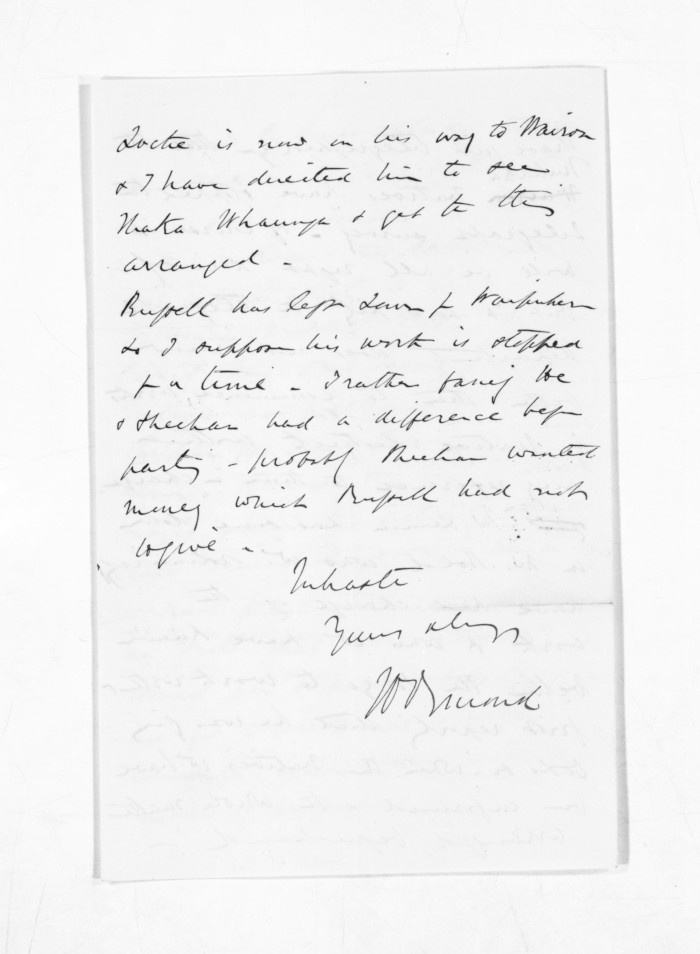 Locke is now on his way to Wairoa
& I have directed him to see
Ihaka Whaanga & get the this
arranged -
Russell has left town for Waipukura
so I suppose his work is stopped
for a time - I rather fancy He
& Sheehan had a difference before
parting - probably Sheehan wanted
money which Russell had not
to give -
In haste
Yours always
JD Ormond